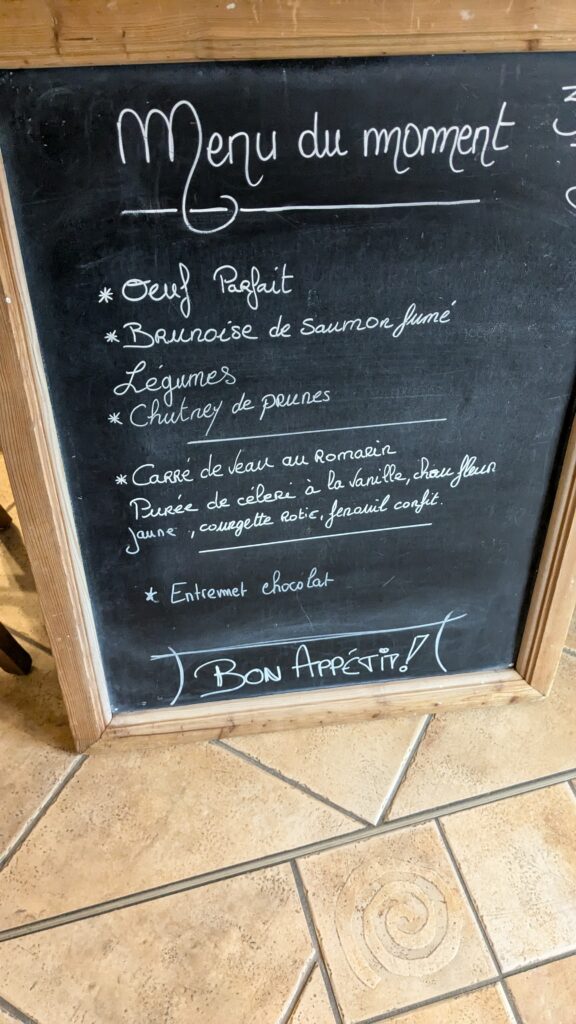 Menu du moment
* Oeuf Parfait
* Brunoise de saumon fumé
Légumes
* Chutney de prunes
* Carré de veau au Romarin
Purée de céleri à la vanille, chou fleur
jaune, courgette Rotie, fenouil confit.
* Entremet chocolat
Bon Appétit!